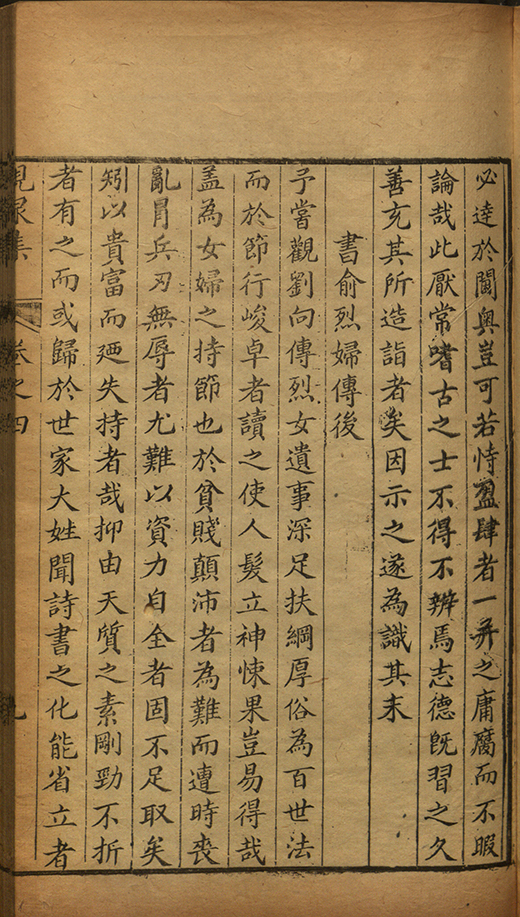 必達於閫奧豈可若恃盈肆者一并之庸腐而不暇
論哉此厭常嗜古之士不得不辨焉志德旣習之久
善充其所造詣者矣因示之遂為識其末
書俞烈婦傳後
予嘗觀劉向傳烈女遺事深足扶綱厚俗為百世法
而於節行峻卓者讀之使人髮立神悚果豈易得哉
盖為女婦之持節也於貧賤顛沛者為難而遭時喪
亂冐兵刃無辱者尤難以資力自全者固不足取矣
矧以貴富而廼失持者哉抑由天質之素剛勁不折
者有之而或歸於世家大姓聞詩書之化能省立者
峴泉集 卷之四 九